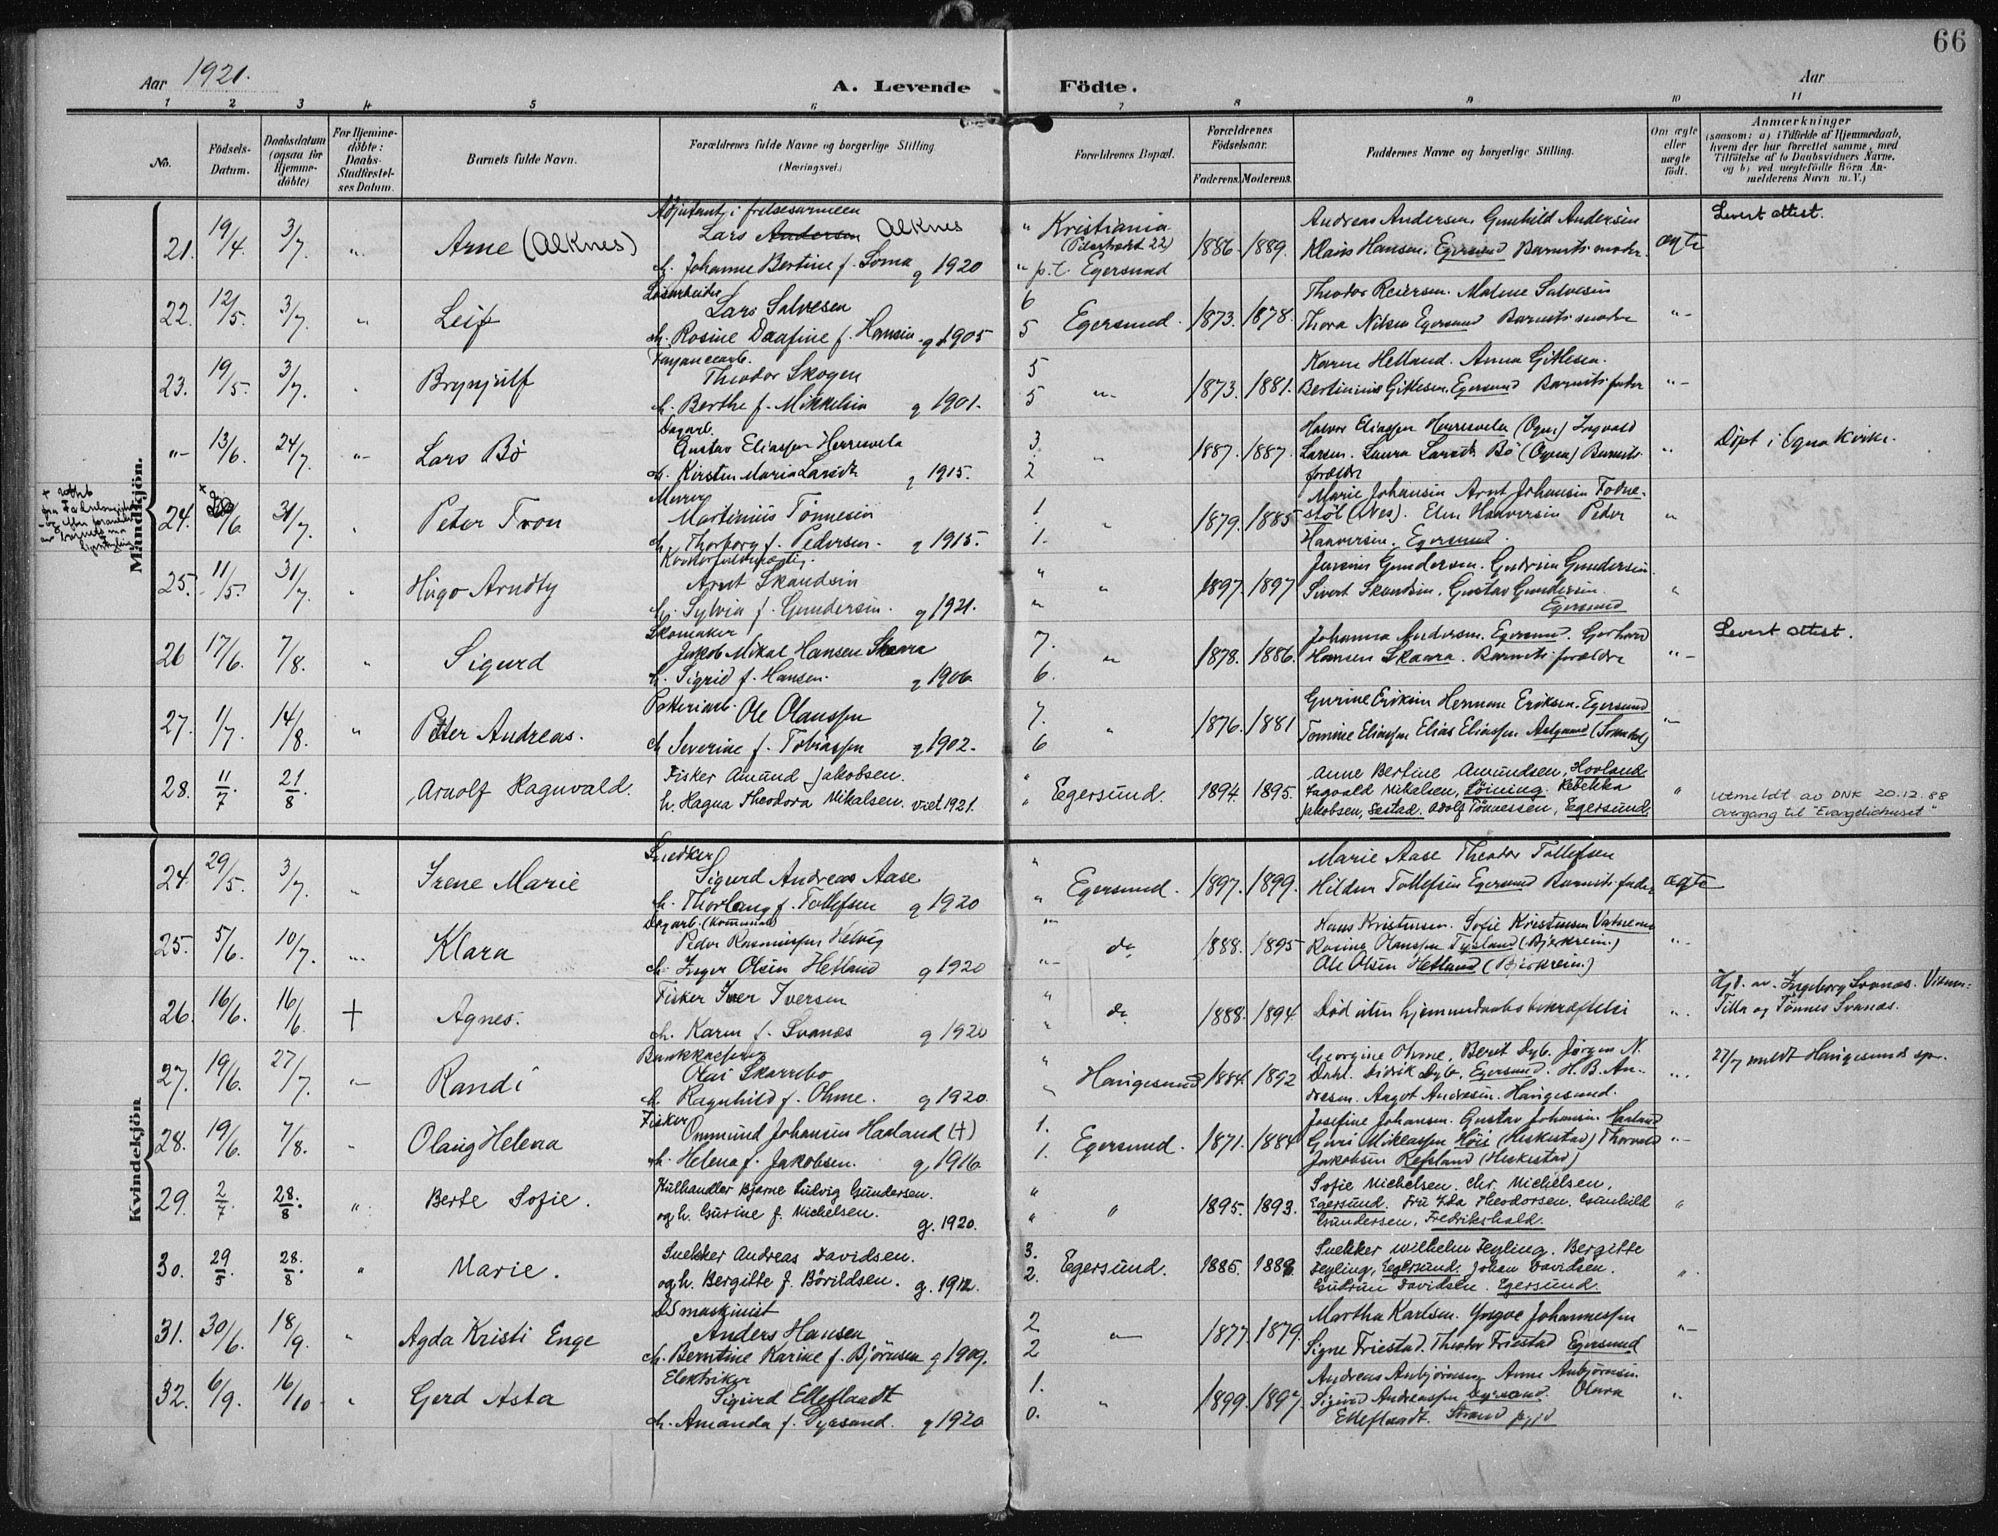 66
Aar 1921.
A. Levende Födte.
Aar
1 2 3 4 5 6 7 8 9 10 11
No.
Födsels-
Datum.
Daabsdatum
(ogsaa for
Hjemme-
döbte)
For Hjemme-
döbte:
Daabs-
Stadfestel-
ses Datum.
Barnets fulde Navn.
Forældrenes fulde Navne og borgerlige Stilling
(Næringsvei.)
Forældrenes Bopæl.
Forældrenes
Födselsaar.
Faderens. Moderens.
Faddernes Navne og borgerlige Stilling.
Om ægte
eller
uægte
født.
Anmærkninger
(saasom: a) i Tilfælde af Hjemmedaab,
hvem der har forrettet samme, med
Tilföielse af to Daabsvidners Navne,
og b) ved uægtefödte Börn An-
melderens Navn m. V.)
Mandkjön.
21. 19/4. 3/7. " Arne (Alknes)
Adjutant i frelsesarmeen
Lars Andersen Alknes
h. Johanne Bertine f. Soma g 1920
" Kristiania
" p.t. Egersund
1886. 1889.
Andreas Andersen. Gunhild Andersen
Klaus Hansen. Egersund Barnets moder.
ægte
Levert attest.
22. 12/5. 3/7. " Leif
Løsarbeider
Lars Salvesen
h. Rosine Daafine f. Hansen. g 1905
6
5
Egersund.
1873. 1878.
Theodor Reiersen. Malene Salvesen
Thora Nilsen Egersund Barnets moder
"-
23. 19/5. 3/7. Brynjulf
Fayancearb.
Theodor Skogen
h. Berthe f. Mikkelsen g 1901.
5
5
"-
1873. 1881.
Karen Helland. Anna Gitlesen.
Bertinius Gitlesen. Egersund Barnets fader
"-
"- 13/6. 24/7. "- Lars Bö
Dagarb.
Gustav Eliassen Herresvela
h. Kirsten Marie Larsdtr g 1915.
3
2
"
1887. 1887.
Halvor Eliassen Herresvela (Ogna) Ingvald
Larsen. Laura Larsdtr Bö (Ogna) Barnets
forældre
"
Døpt i Ogna kirke.
24. /6. 31/7. " Peter Tron
Murer
Martinius Tönnesen
h. Thorborg f. Pedersen. g 1915.
1
1.
"
1879. 1885
Marie Johansen Arnt Johansen Todne-
stöl (Nes). Elen Haaversen Peder
Haaversen. Egersund.
"
25. 11/5. 31/7. Hugo Arndty
Kontorfuldmægtig.
Arnt Skandsen
h. Sylvia f. Gundersen. g 1921.
"
"
"
1897. 1897
Gundersen. Gudrun Gundersen.
Sivert Skandsen. Gustav Gundersen
Egersund
"
26 17/6. 7/8. " Sigurd
Skomaker
Jakob Mikal Hansen Skaara
h. Sigrid f. Hansen. g 1906.
7.
6.
"
1878. 1886.
Johanna Andersen. Egersund. Gerhard
Hansen Skaara. Barnets forældre
"-
Levert attest.
27. 1/7. 14/8. " Peter Andreas.
Potteriarb. Ole Olaussen
h Severine f. Tobiassen g 1902.
7.
6
"
1876. 1881
Gurine Eriksen Herman Eriksen. Egersund
Tomine Eliassen Elias Eliassen
"-
28. 11/7 21/8. Arnolf Ragnvald.
Fisker Amund Jakobsen.
h. Hagna Theodora Mikalsen. viet 1921.
"
"
Egersund.
1894. 1895.
Anne Bertine Amundsen, Hovland.
Ingvald Mikalsen, Löining. Rebekka
Jakobsen, Sæstad. Adolf Tönnessen, Egersund.
"
Utmeldt av DNK 20.12.88
Overgang til "Evangeliehuset"
Kvindekjön
24. 29/5. 3/7. " Irene Marie
Snedker
Sigurd Andreas Aase
h. Thorlaug f. Tollefsen g 1920
"
"
Egersund.
1897. 1899.
Marie Aase Theodor Tollefsen
Hildur Tollefsen Egersund Barnets fader
ægte
25. 5/6. 10/7. "- Klara
Dagarb. (kommunal)
Peder Rasmussen Helvig
h. Inger Olsen Hetland g 1920
"-
"-
do
1888. 1895
Hans Kristensen. Sofie Kristensen
Rosine Olaussen Tysland (Bjerkreim.)
Ole Olsen Hetland (Bjerkreim.)
"-
26. 16/6. 16/6. + Agnes.
Fisker Iver Iversen
h. Karen f. Svanæs g 1920
"
"
do
1888. 1894
Död uten hjemmedaabs bekræftelse
".
Hjd. av. Ingeborg Svanæs. Vitner:
Tilla og Tönnes Svanæs.
27. 19/6. 27/7. "- Randi
Bankkasserer
Olai Skarrebo
h. Ragnhild f. Ohme. g 1920.
"
"
Haugesund
1884. 1892
Georgine Ohme. Berit Dyb. Jørgen N.
Dahl. Didrik Dyb, Egersund. H. B. An-
dresen. Aagot Andresen. Haugesund.
"-
27/7 meldt Haugesunds spr.
28. 19/6. 7/8. " Olaug Helena
Fisker
Ommund Johansen Haaland (+)
h. Helena f. Jakobsen. g 1916.
1.
1.
Egersund.
1871. 1884
Josefine Johansen. Gustav Johansen. Haaland
Guri Miklassen Höie (Heskestad) Thorvald
Jakobsen Refsland (Heskestad)
"-
29. 2/7. 28./8. " Berte Sofie.
Kulhandler Bjarne Ludvig Gundersen.
og h. Gurine f. Michelsen. g. 1920.
"
"
"
1895. 1893.
Sofie Michelsen. Chr. Michelsen,
Egersund. Fru Ida Theodorsen. Gunhild
Gundersen, Fredrikshald.
"
30. 29/5. 28./8. " Marie.
Snekker Andreas Davidsen.
og h. Bergitte f. Börildsen. g. 1912.
3.
2.
Egersund.
1885. 1888.
Snekker Wilhelm Feyling. Bergitte
Feyling, Egersund. Johan Davidsen.
Gudrun Davidsen. Egersund.
"
31. 30/6. 18/9. " Agda Kristi Enge
DSmaskinist
Anders Hansen
h. Berntine Karine f. Björnsen g 1909.
2
2
"-
1877. 1879.
Martha Karlsen. Yngve Johannessen
Signe Friestad. Theodor Friestad Egersund
"-
32. 6/9. 16/10. " Gerd Asta
Elektriker
Sigurd Elleflaadt
h. Amanda f. Dyrsand. g 1920
1.
0.
"
1899. 1897
Andreas Anbjörnsen Anne Anbjörnsen
Sigurd Andreassen Egersund. Olava
Elleflaadt. Strand
".